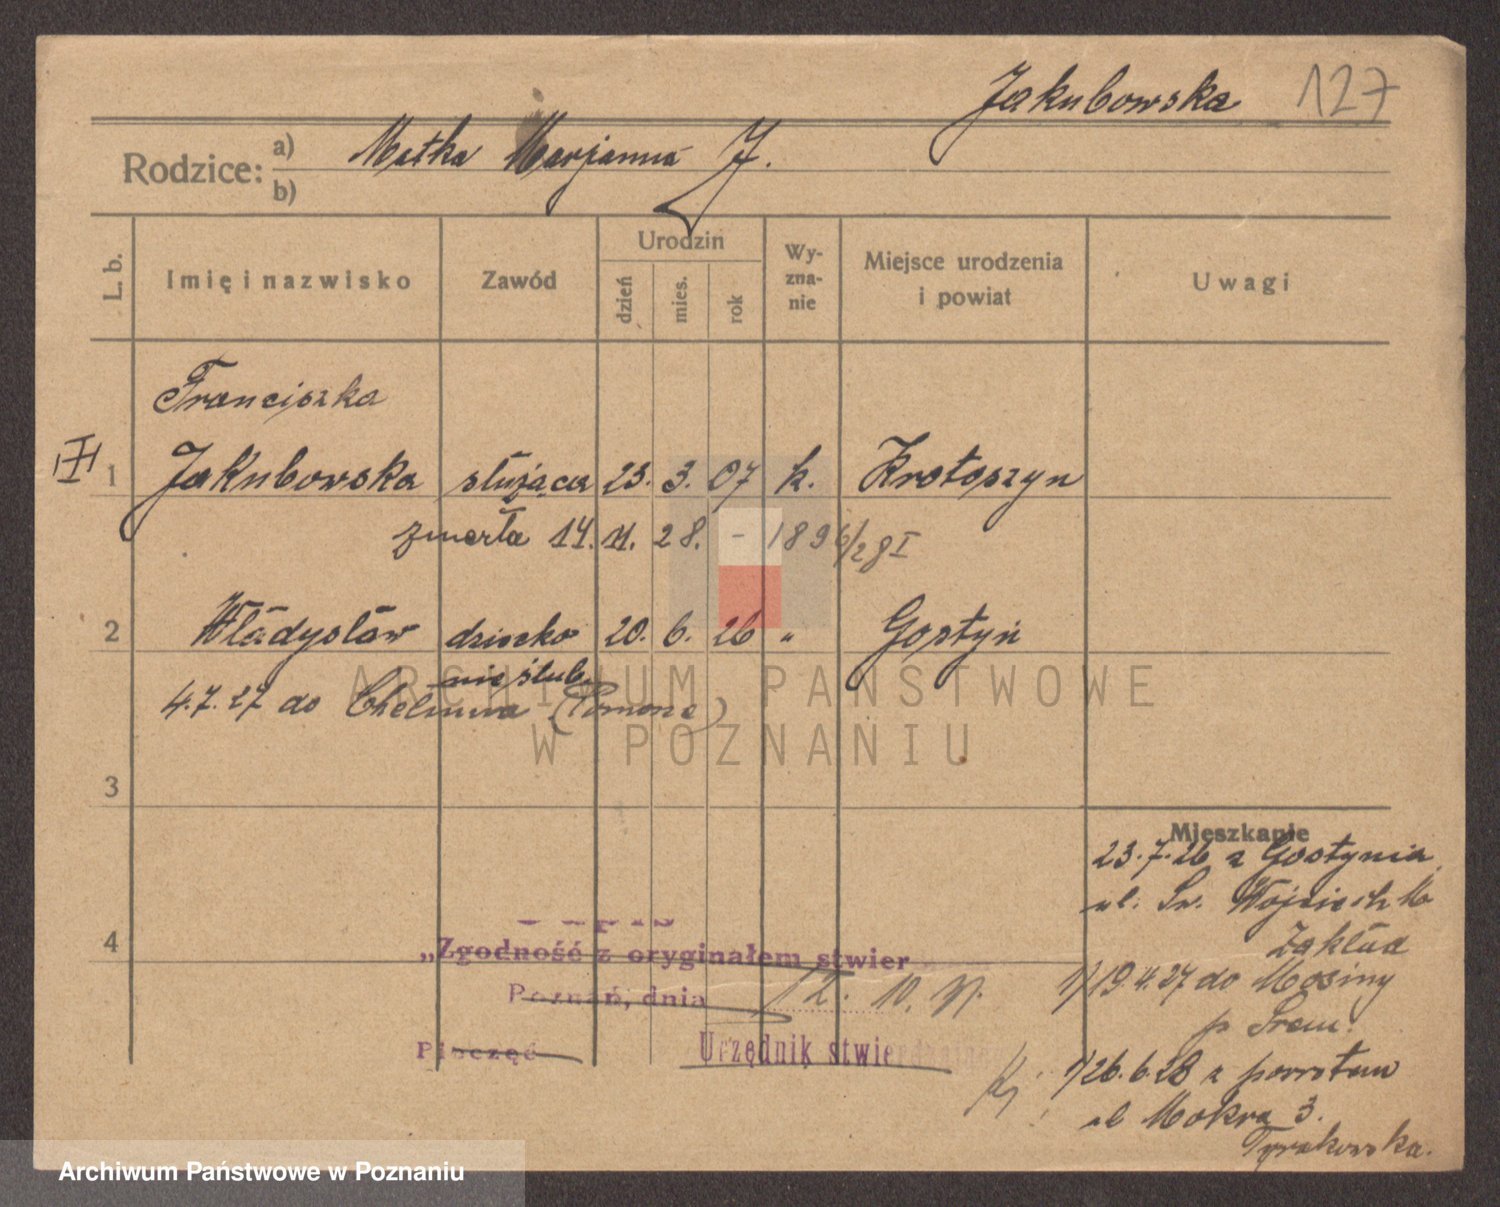 Jakubowska 127
Rodzice: a) Matka Marjanna J.
b)
L. b.
Imię i nazwisko
Zawód
Urodzin
dzień
mies.
rok
Wy-
zna-
nie
Miejsce urodzenia
i powiat
Uwagi
Franciszka
1 Jakubowska służąca 23. 3. 07 k. Krotoszyn
zmarła 14. 11. 28. - 1896/28 I
2 Władysław dziecko 20. 6. 26 " Gostyń
nieślub.
4.7.27 do Chełmna (Pomorze)
3
Mieszkanie
23.7.26 z Gostynia
ul. Św. Wojciech
Zakład
4
1) 19.4.27 do Mosiny
p. Śrem.
1) 26.6.28 z powrotem
ul Mokra 3.
Tyrakowska.
Odpis
„Zgodność z oryginałem stwier
Poznań, dnia 12. 10.
Pieczęć
Urzędnik stwierdzający
ARCHIWUM PAŃSTWOWE
W POZNANIU
Archiwum Państwowe w Poznaniu